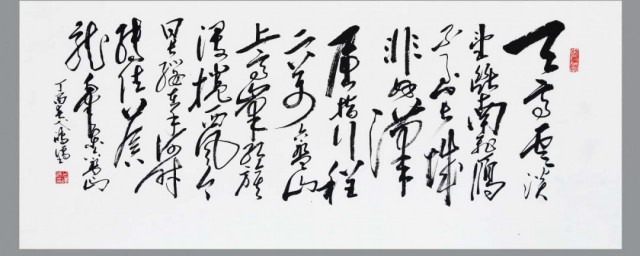 天高雲淡
望断南飛雁
不到长城
非好漢
屈指行程
二万六盤山
上高峰红旗
漫捲西风今
日长缨在手何时
缚住苍
龙 六盘山
丁酉